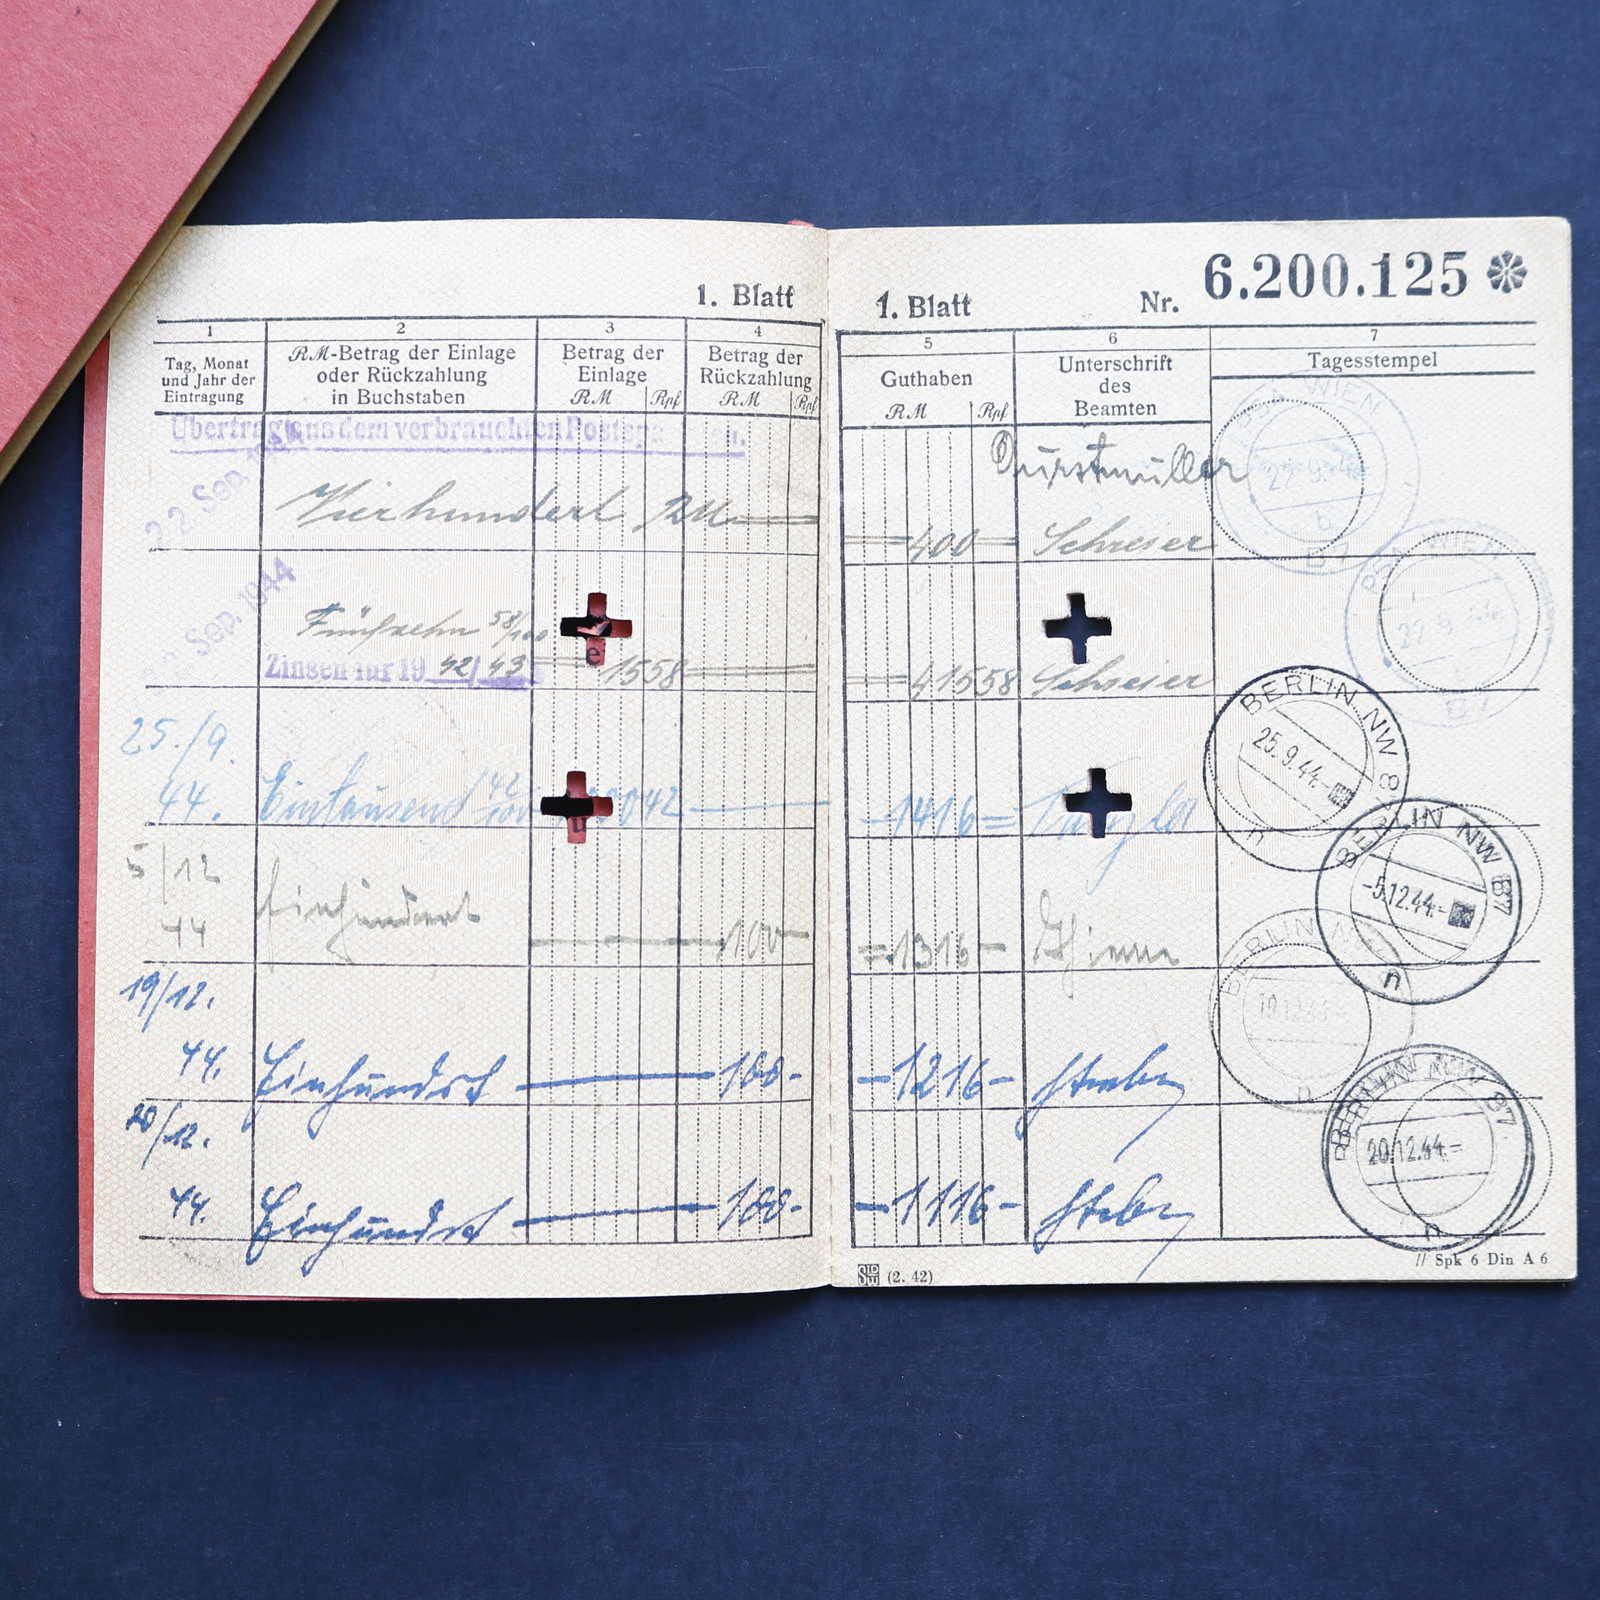 1. Blatt
1 2 3 4
Tag, Monat und Jahr der Eintragung
RM-Betrag der Einlage oder Rückzahlung in Buchstaben
Betrag der Einlage
RM Rpf
Betrag der Rückzahlung
RM Rpf
Übertrag aus dem verbrauchten
22. Sep.
Vierhundert RM
Sep. 1944
Fünfzehn 58/100
Zinsen für 19 42/43 1558
e
25./9.
44. Eintausend 42
u
5/12
44 Einhundert 100
19/12.
44. Einhundert 100-
20/12.
44. Einhundert 100-
1. Blatt Nr. 6.200.125
5 6 7
Guthaben
RM Rpf
Unterschrift des Beamten
Tagesstempel
400 Schreier
41558 Schreier
-1416=
=1316-
-1216-
-1116-
WIEN
22.9.
b
WIEN
22.9.
BERLIN NW 8
25.9.44.-
n
BERLIN NW 87
-5.12.44.-
n
BERLIN
n
BERLIN NW 87
20.12.44.=
n
(2. 42)
// Spk 6 Din A 6